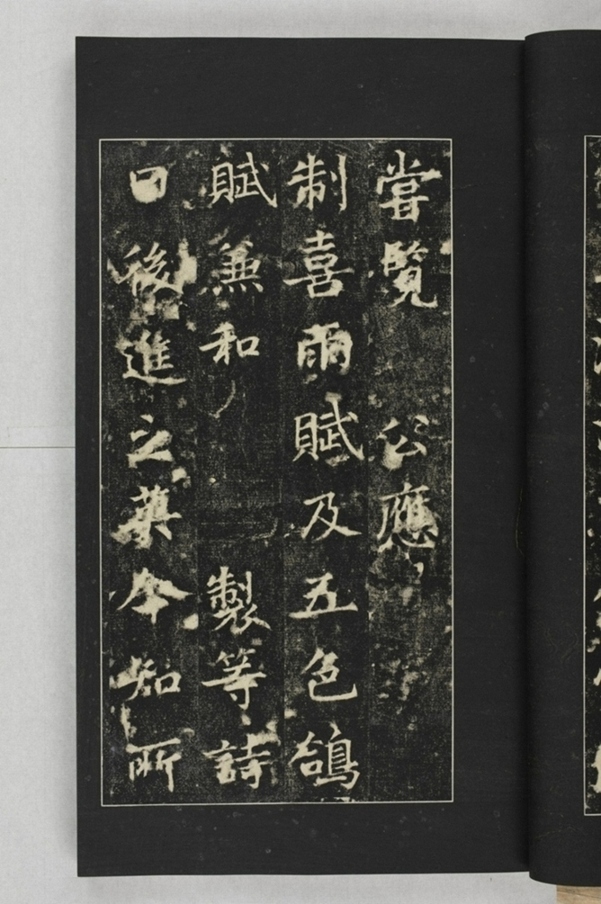 嘗覽 公應
制喜雨賦及五色鴿
賦兼和 製等詩
曰後進之英今知所